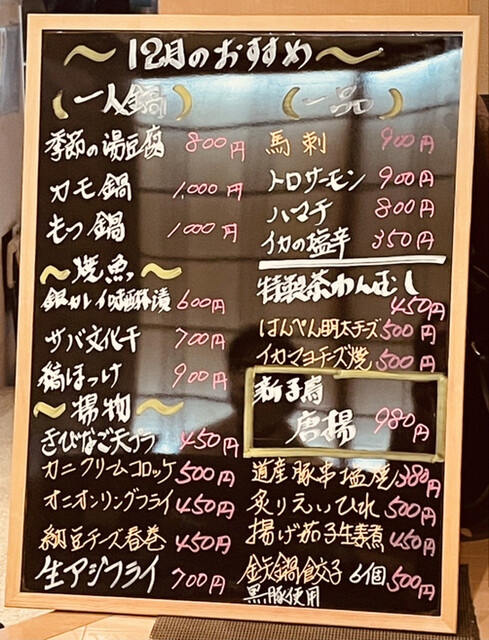 12月のおすすめ
一人鍋
季節の湯豆腐 800円
カモ鍋 1,000円
もつ鍋 1,000円
焼魚
銀カレイ味醂漬 600円
サバ文化干 700円
縞ほっけ 900円
揚物
きびなご天プラ 450円
カニクリームコロッケ 500円
オニオンリングフライ 450円
納豆チーズ春巻 450円
生アジフライ 700円
一品
馬刺 900円
トロサーモン 900円
ハマチ 800円
イカの塩辛 350円
特製茶わんむし 450円
はんぺん明太チーズ 500円
イカマヨチーズ焼 500円
新子焼
唐揚 980円
道産豚串塩焼 380円
炙りえいひれ 500円
揚げ茄子生姜煮 450円
鉄鍋餃子 6個 500円
黒豚使用